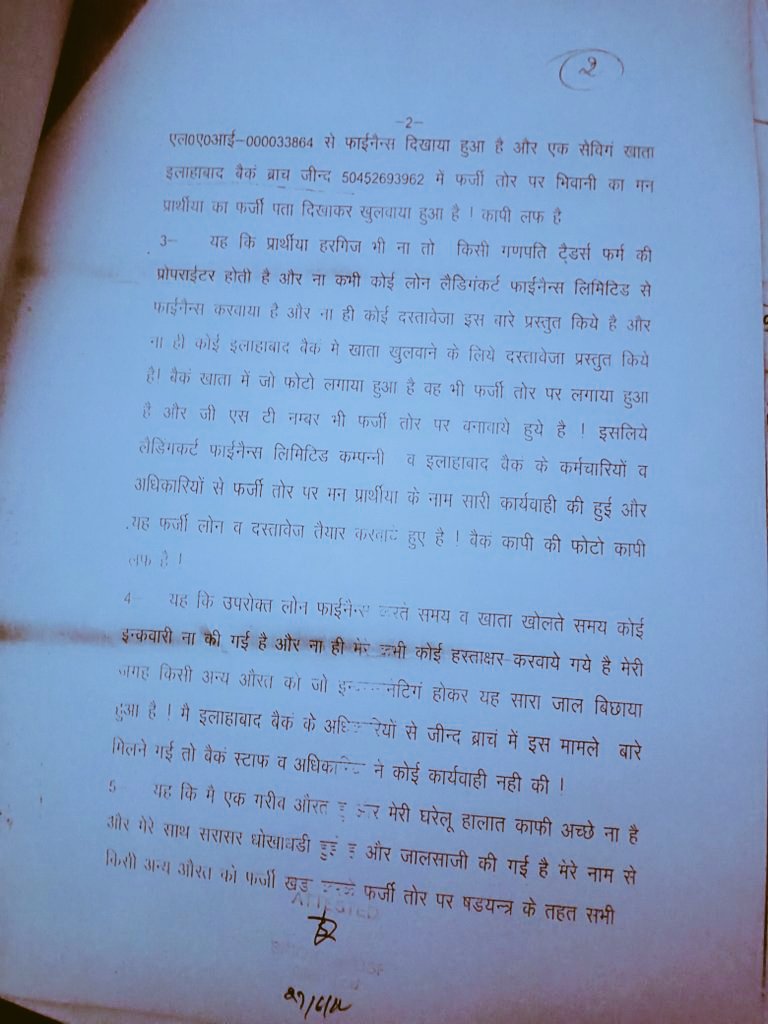 2
-2-
एल0ए0आई-000033864 से फाईनैन्स दिखाया हुआ है और एक सेविगं खाता
इलाहाबाद बैकं ब्राच जीन्द 50452693962 में फर्जी तोर पर भिवानी का मन
प्रार्थीया का फर्जी पता दिखाकर खुलवाया हुआ है ! कापी लफ है
3- यह कि प्रार्थीया हरगिज भी ना तो किसी गणपति ट्रैडर्स फर्म की
प्रोपराईटर होती है और ना कभी कोई लोन लैडिगंकर्ट फाईनैन्स लिमिटिड से
फाईनैन्स करवाया है और ना ही कोई दस्तावेजा इस बारे प्रस्तुत किये है और
ना ही कोई इलाहाबाद बैकं मे खाता खुलवाने के लिये दस्तावेजा प्रस्तुत किये
है! बैकं खाता में जो फोटो लगाया हुआ है वह भी फर्जी तोर पर लगाया हुआ
है और जी एस टी नम्बर भी फर्जी तोर पर बनावाये हुये है ! इसलिये
लैडिगकर्ट फाईनैन्स लिमिटिड कम्पन्नी व इलाहाबाद वैकं के कर्मचारियों व
अधिकारियों से फर्जी तोर पर मन प्रार्थीया के नाम सारी कार्यवाही की हुई और
यह फर्जी लोन व दस्तावेज तैयार हुए है ! वैकं कापी की फोटो कापी
लफ है !
4- यह कि उपरोक्त लोन फाईनैन्स करते समय व खाता खोलते समय कोई
इन्कवारी ना की गई है और ना ही मेरे कभी कोई हस्ताक्षर करवाये गये है मेरी
जगह किसी अन्य औरत को जो होकर यह सारा जाल बिछाया
हुआ है ! मै इलाहाबाद बैकं के से जीन्द ब्राचं में इस मामले बारे
मिलने गई तो वैकं स्टाफ व ने कोई कार्यवाही नही की !
5- यह कि मै एक गरीव औरत हूं और मेरी घरेलू हालात काफी अच्छे ना है
और मेरे साथ सरासर धोखाधडी हुई है और जालसाजी की गई है मेरे नाम से
किसी अन्य औरत को फर्जी फर्जी तोर पर षडयन्त्र के तहत सभी
ATTESTED